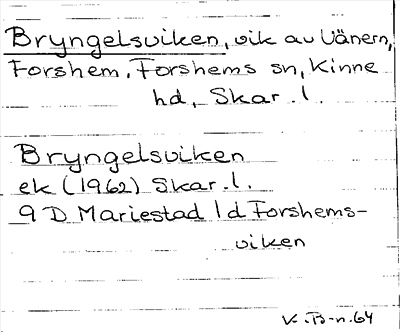 Bryngelsviken, vik av Vänern,
Forshem, Forshems sn, Kinne
hd, Skar. l.
Bryngelsviken
ek (1962) Skar. l.
9 D Mariestad 1 d Forshems-
viken
V. B-n. 64